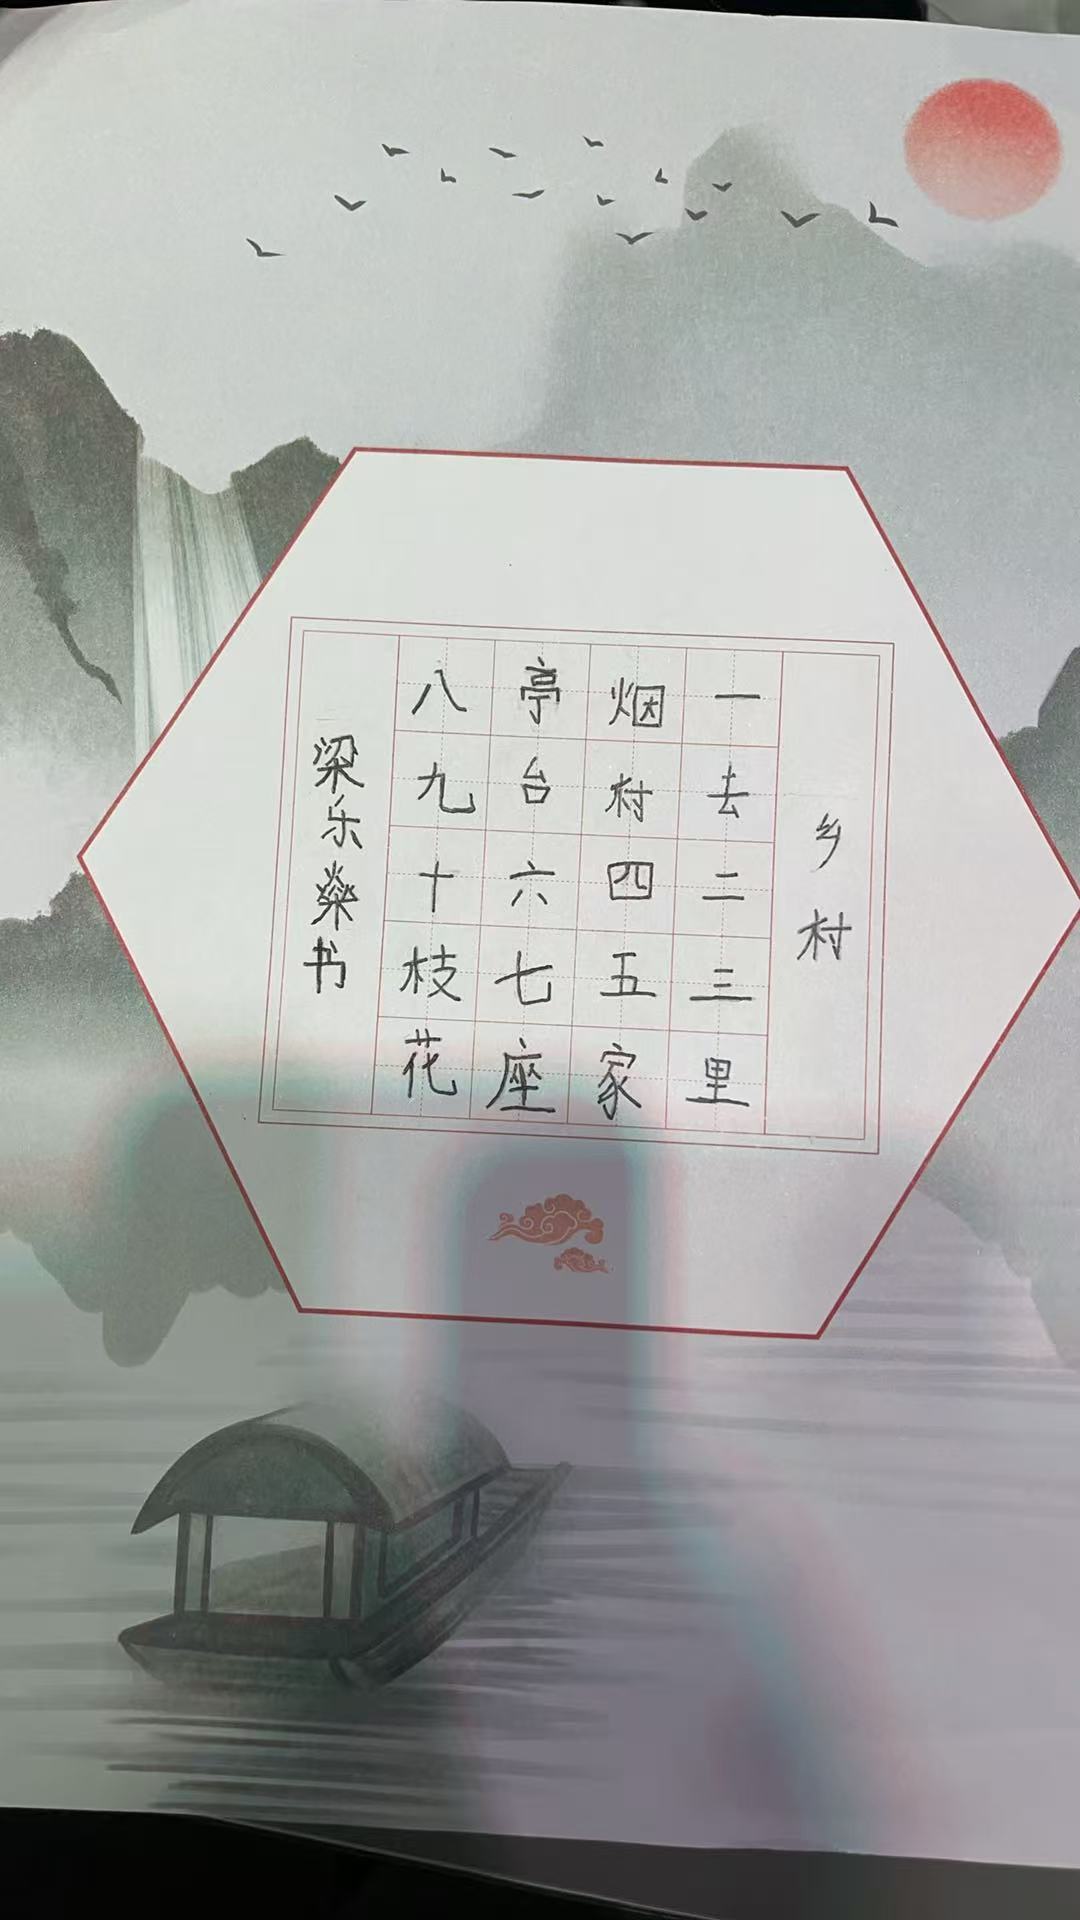 乡村
一去二三里
烟村四五家
亭台六七座
八九十枝花
梁乐燊书